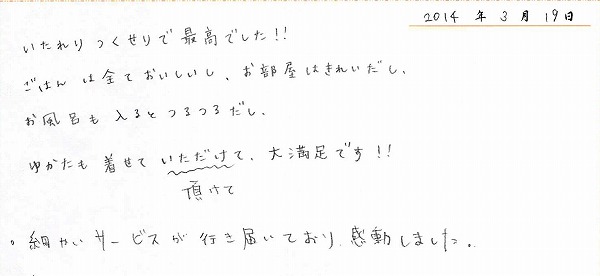 2014 年 3 月 19 日
いたれりつくせりで最高でした!!
ごはんは全ておいしいし、お部屋はきれいだし、
お風呂も入るとつるつるだし、
ゆかたも着せていただけて、大満足です!!
頂けて
。細かいサービスが行き届いており、感動しました。